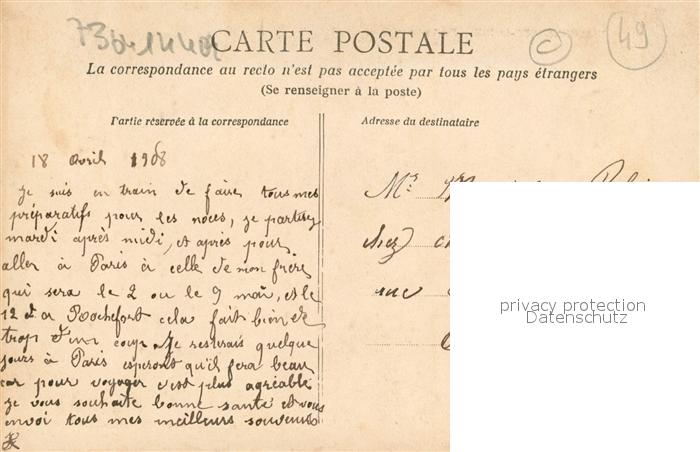 730-144
49
CARTE POSTALE
La correspondance au recto n'est pas acceptée par tous les pays étrangers
(Se renseigner à la poste)
Partie réservée à la correspondance
Adresse du destinataire
18 avril 1908
Je suis en train de faire tous mes
préparatifs pour les noces, je partirai
mardi après midi, et après pour
aller à Paris à celle de mon frère
qui sera le 2 ou le 9 mai, et le
12 d à Rochefort cela fait bien de
trop d'un coup. Je resterais quelque
jours à Paris esperont qu'il fera beau
car pour voyager c'est plus agréable
Je vous souhaite bonne santé et vous
envoi tous mes meilleurs souvenirs
Mr
chez
rue
privacy protection
Datenschutz